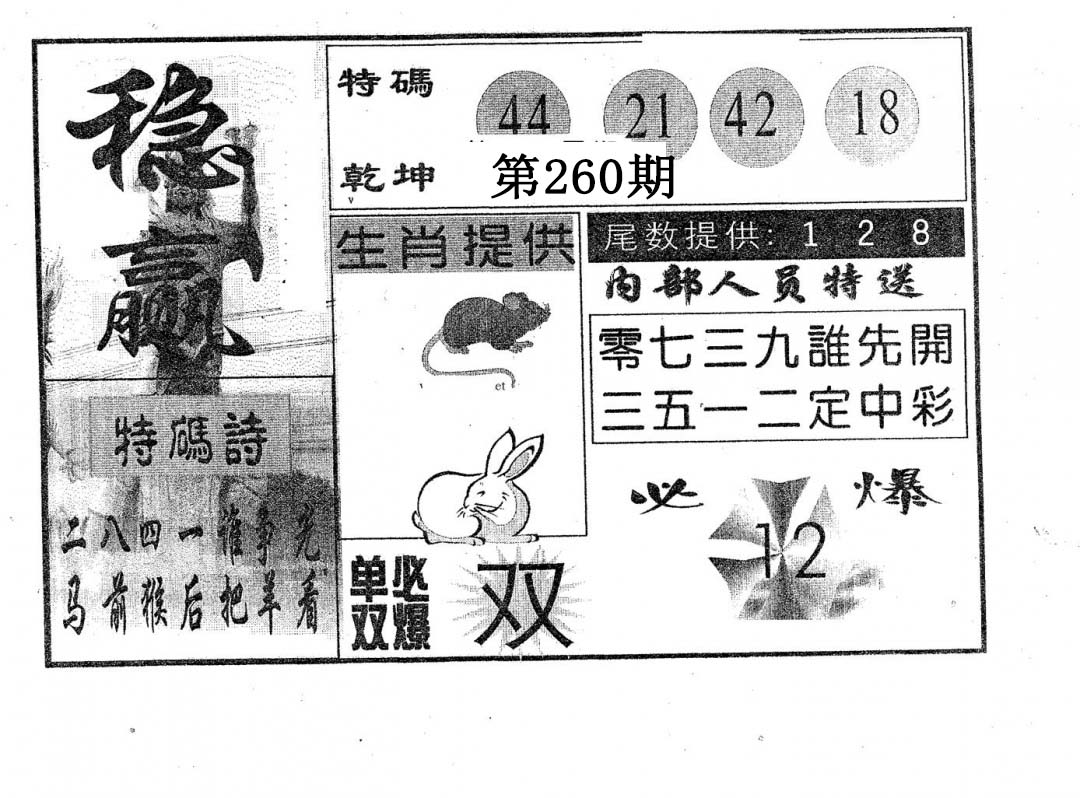 稳
赢
特碼
44 21 42 18
乾坤
第260期
生肖提供
尾数提供: 1 2 8
内部人员特送
零七三九誰先開
三五一二定中彩
特碼詩
二八四一谁争先
马前猴后把羊看
必爆
12
单必
双爆
双